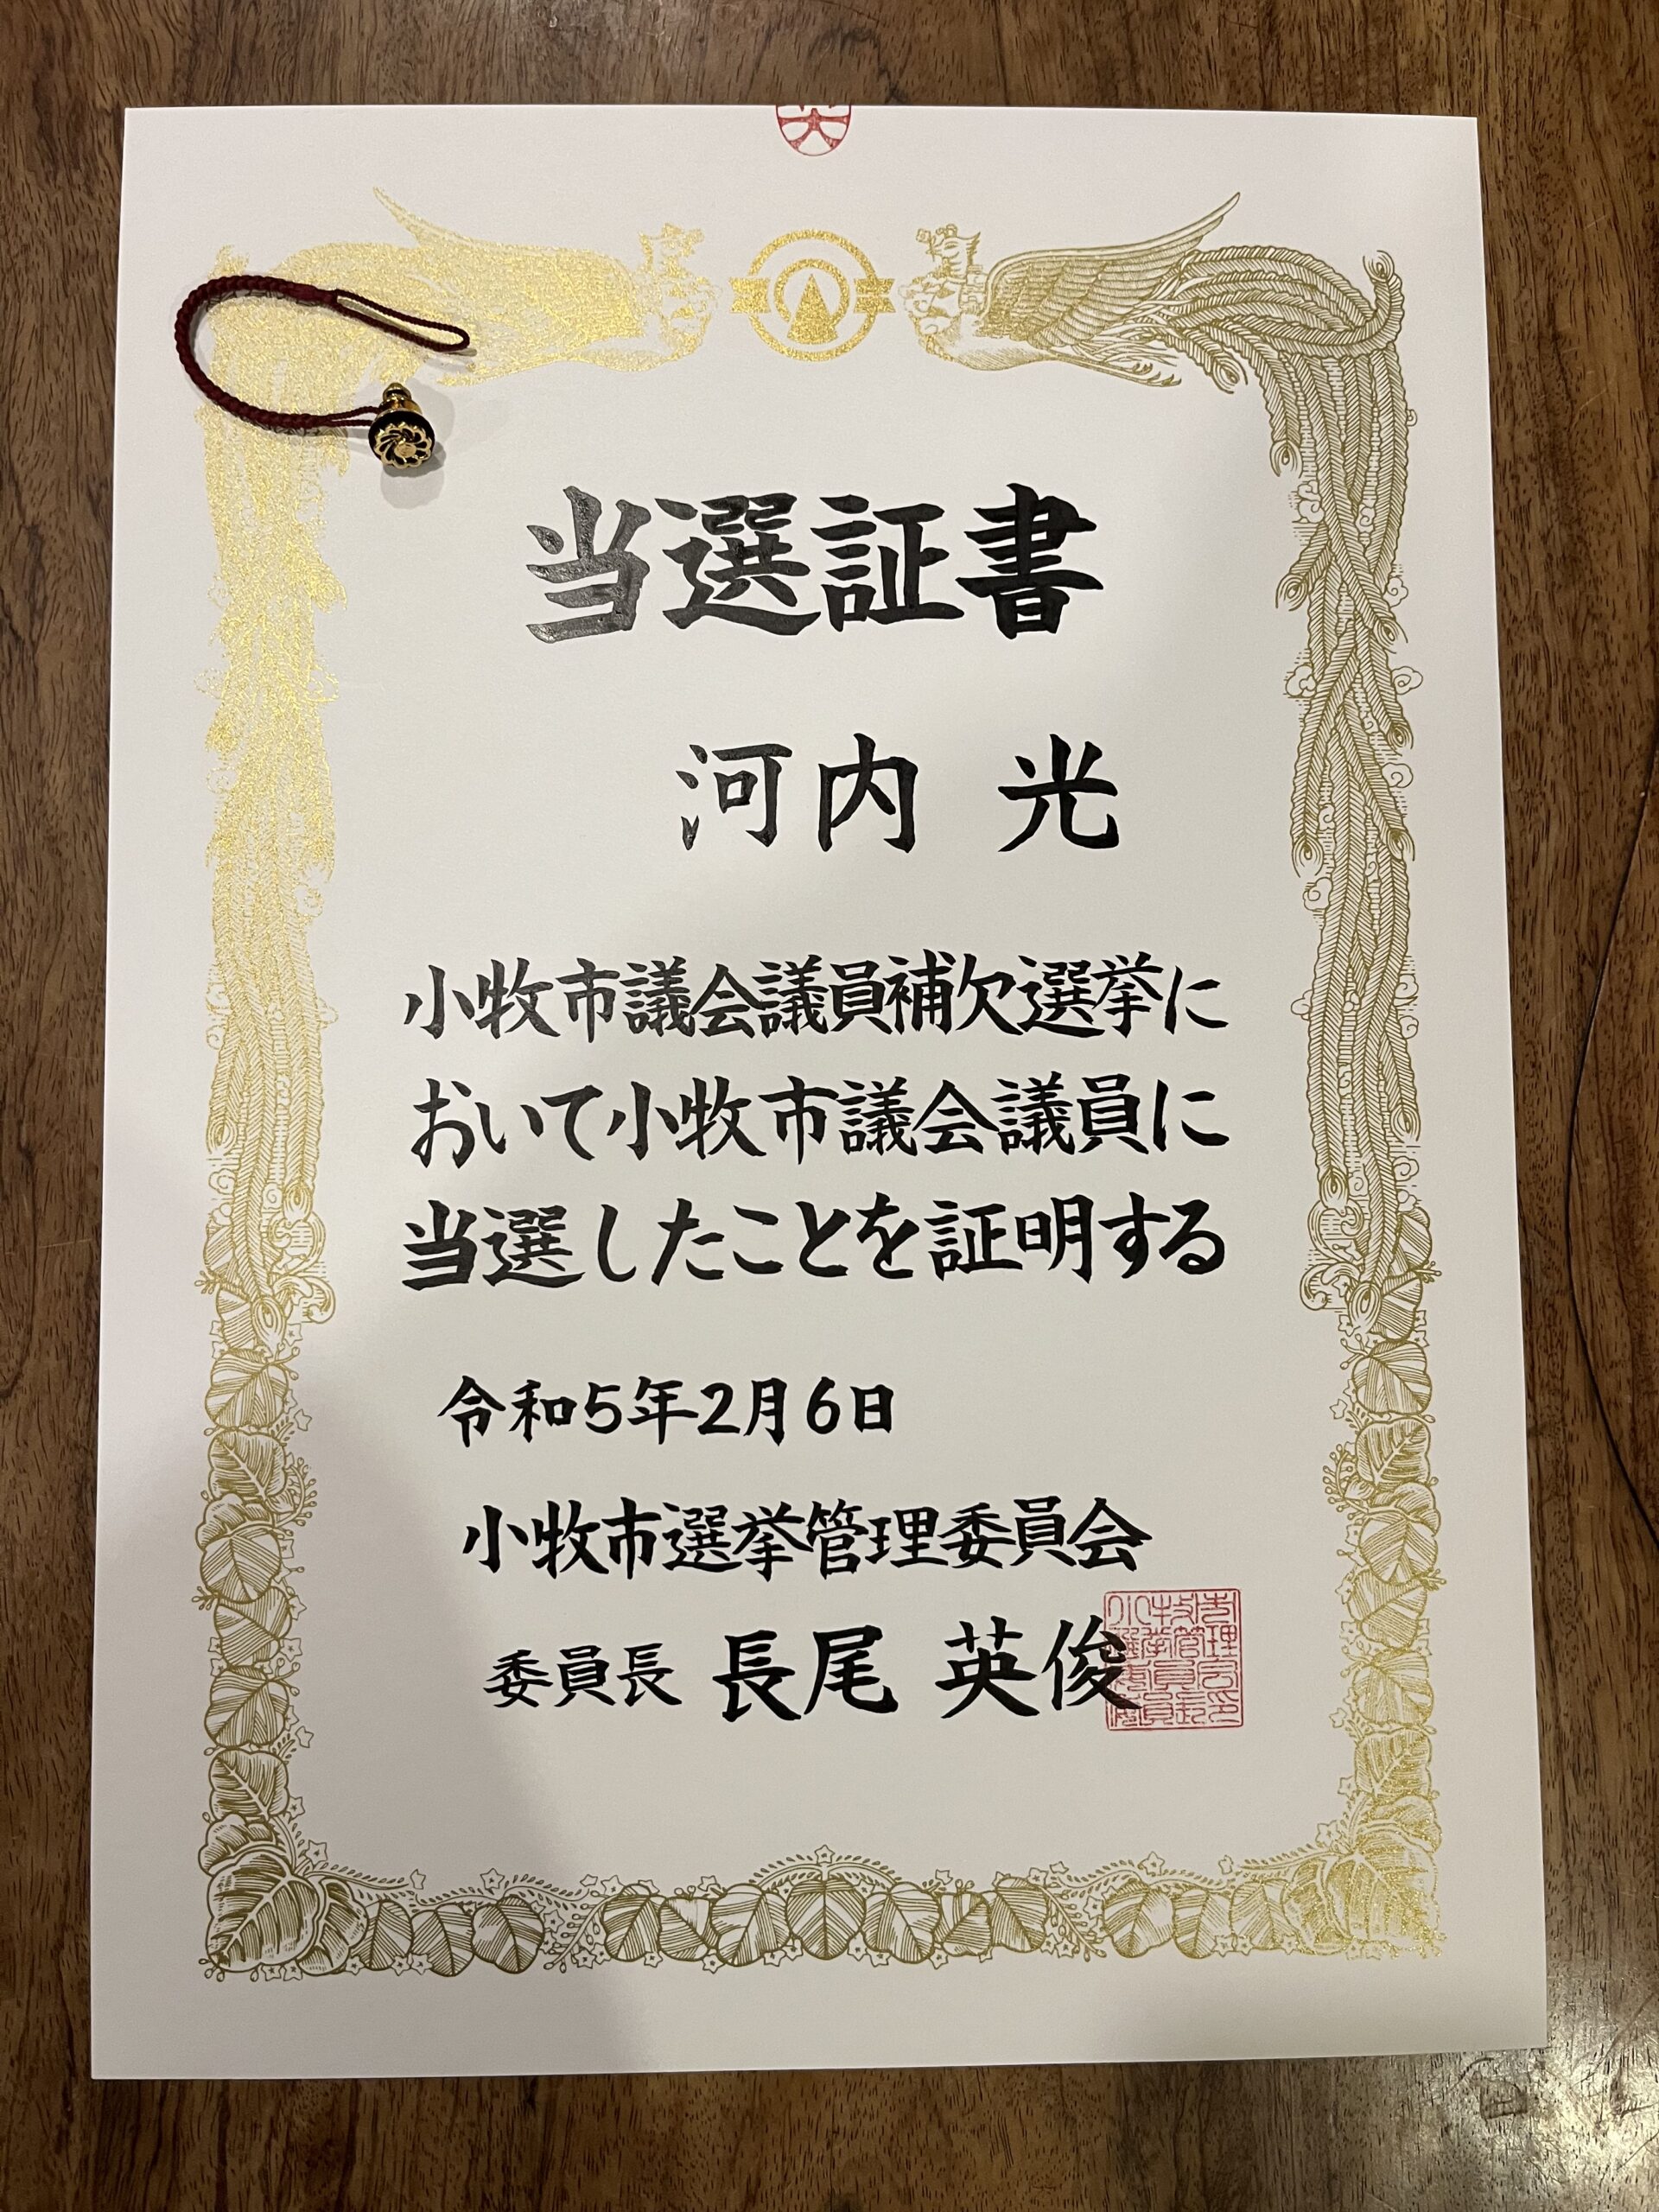 当選証書
河内 光
小牧市議会議員補欠選挙に
おいて小牧市議会議員に
当選したことを証明する
令和5年2月6日
小牧市選挙管理委員会
委員長 長尾 英俊